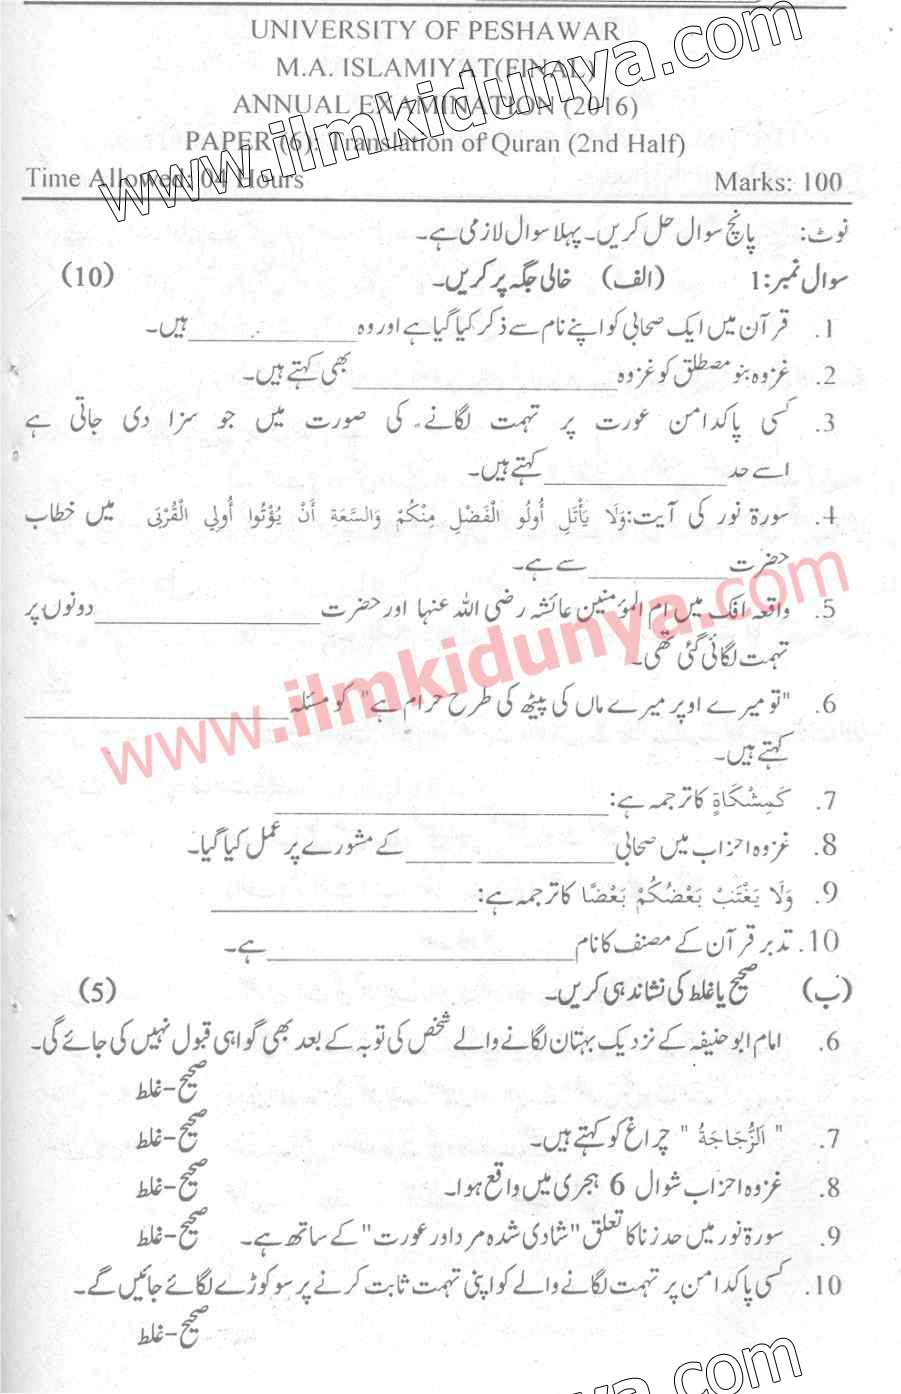 UNIVERSITY OF PESHAWAR
M.A. ISLAMIYAT(FINAL)
ANNUAL EXAMINATION (2016)
PAPER (6): Translation of Quran (2nd Half)
Time Allowed: 04 Hours Marks: 100
نوٹ: پانچ سوال حل کریں۔ پہلا سوال لازمی ہے۔
سوال نمبر:1 (الف) خالی جگہ پر کریں۔ (10)
1. قرآن میں ایک صحابی کو اپنے نام سے ذکر کیا گیا ہے اور وہ ____________ ہیں۔
2. غزوہ بنو مصطلق کو غزوہ ____________ بھی کہتے ہیں۔
3. کسی پاکدامن عورت پر تہمت لگانے کی صورت میں جو سزا دی جاتی ہے
اسے حد ____________ کہتے ہیں۔
4. سورۃ نور کی آیت: وَلَا يَأْتَلِ أُولُو الْفَضْلِ مِنْكُمْ وَالسَّعَةِ أَنْ يُؤْتُوا أُولِي الْقُرْبَى میں خطاب
حضرت ____________ سے ہے۔
5. واقعہ افک میں ام المؤمنین عائشہ رضی اللہ عنہا اور حضرت ____________ دونوں پر
تہمت لگائی گئی تھی۔
6. "تو میرے اوپر میرے ماں کی پیٹھ کی طرح حرام ہے" کو مسئلہ ____________
کہتے ہیں۔
7. كَمِشْكَاةٍ کا ترجمہ ہے: ____________
8. غزوہ احزاب میں صحابی ____________ کے مشورے پر عمل کیا گیا۔
9. وَلَا يَغْتَبْ بَعْضُكُمْ بَعْضًا کا ترجمہ ہے: ____________
10. تدبر قرآن کے مصنف کا نام ____________ ہے۔
(ب) صحیح یا غلط کی نشاندہی کریں۔ (5)
6. امام ابو حنیفہ کے نزدیک بہتان لگانے والے شخص کی توبہ کے بعد بھی گواہی قبول نہیں کی جائے گی۔
صحیح-غلط
7. " اَلزُّجَاجَةُ " چراغ کو کہتے ہیں۔ صحیح-غلط
8. غزوہ احزاب شوال 6 ہجری میں واقع ہوا۔ صحیح-غلط
9. سورۃ نور میں حد زنا کا تعلق "شادی شدہ مرد اور عورت" کے ساتھ ہے۔ صحیح-غلط
10. کسی پاکدامن پر تہمت لگانے والے کو اپنی تہمت ثابت کرنے پر سو کوڑے لگائے جائیں گے۔
صحیح-غلط
www.ilmkidunya.com
www.ilmkidunya.com